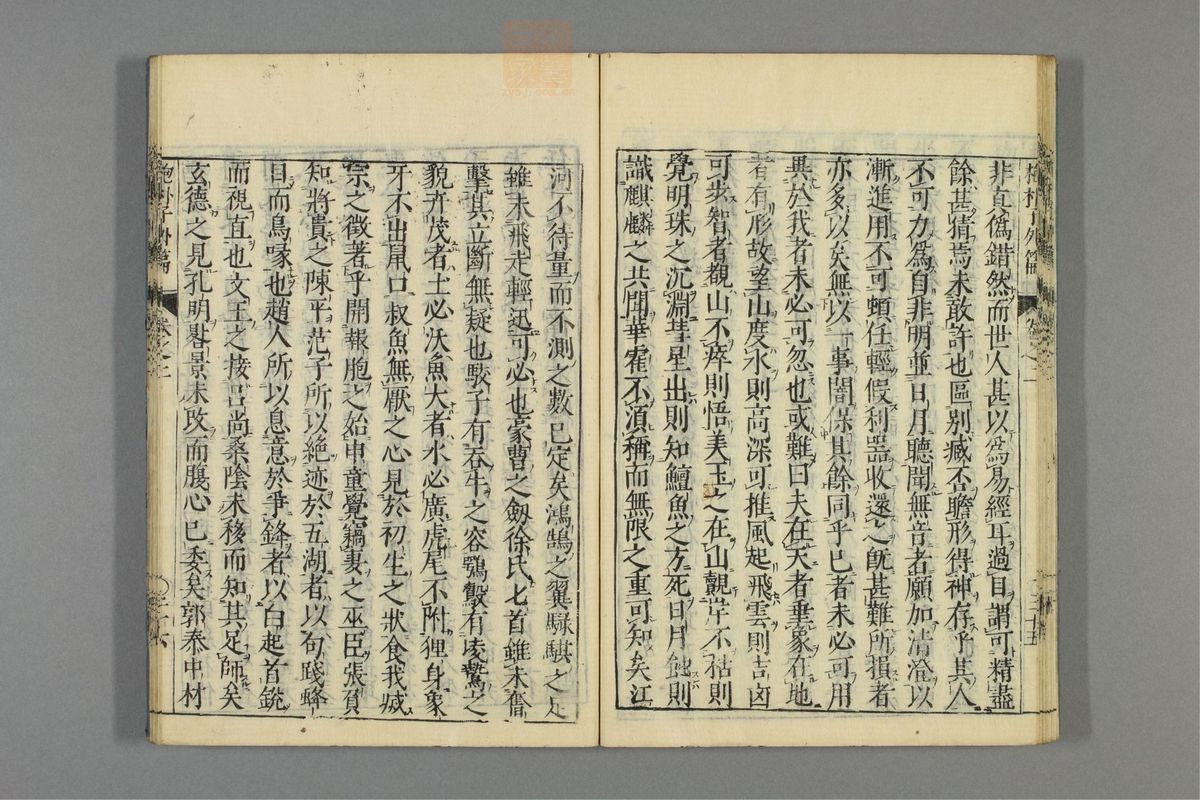 非直僞錯然而世人甚以爲易經耳過目謂可精盡
餘甚猜焉未敢許也區別臧否瞻形得神存乎其人
不可力爲自非明並日月聽聞無音者願加清澄以
漸進用不可頓任輕假利器收還之旣甚難所損者
亦多以矣無以一事闇保其餘同乎已者未必可用
異於我者未必可忽也或難曰夫在天者垂象在地
者有形故望山度水則高深可推風起飛雲則吉凶
可步智者覩山不瘁則悟美玉之在山覿岸不枯則
覺明珠之沉淵彗星出則知鱣魚之方死日月蝕則
識麒麟之共鬪華霍不湏稱而無限之重可知矣江
河不待量而不測之數已定矣鴻鵠之翼騄騏之足
雖未飛走輕迅可必也豪曹之劔徐氏匕首雖未奮
擊其立斷無疑也駮子有吞牛之容鶚鷇有凌鷙之
貌卉茂者土必沃魚大者水必廣虎尾不附狸身象
牙不出鼠口叔魚無厭之心見於初生之狀食我滅
宗之徵著乎開報胞之始申童覺竊妻之巫臣張負
知將貴之陳平范子所以絶迹於五湖者以句踐蜂
目而鳥喙也趙人所以息意於爭鋒者以白起首銳
而視直也文王之接吕尚桑陰未移而知其足師矣
玄德之見孔明晷景未改而腹心已委矣郭泰中材
抱朴子外篇
卷之二
三十六
三十五